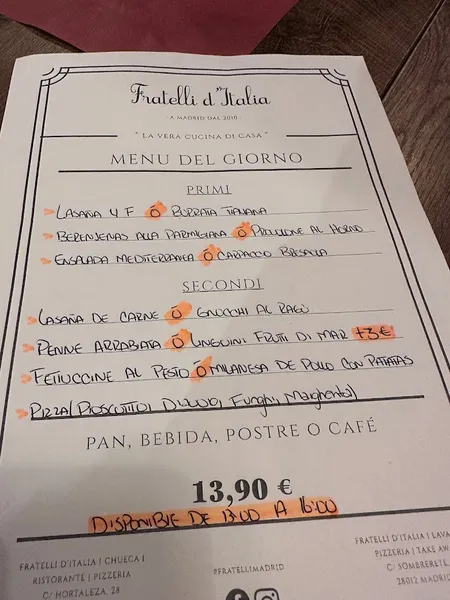 Fratelli d'Italia
A MADRID DAL 2010
"LA VERA CUCINA DI CASA"
MENU DEL GIORNO
PRIMI
LASAÑA 4 F Ó BURRATA TIANANA
BERENJENAS ALLA PARMIGIANA Ó PROVOLONE AL HORNO
ENSALADA MEDITERRANEA Ó CARPACCIO BRESAOLA
SECONDI
LASAÑA DE CARNE Ó GNOCCHI AL RAGÚ
PENNE ARRABIATA Ó LINGUINI FRUTI DI MAR +3€
FETTUCCINE AL PESTO Ó MILANESA DE POLLO CON PATATAS
PIZZA( Funghi, Margherita)
PAN, BEBIDA, POSTRE O CAFÉ
13,90 €
DISPONIBLE DE 13:00 A 16:00
FRATELLI D'ITALIA | CHUECA |
RISTORANTE | PIZZERIA
C/ HORTALEZA, 28
#FRATELLIMADRID
FRATELLI D'ITALIA | LAVA
PIZZERIA | TAKE AW
C/ SOMBRERETE,
28012 MADRID